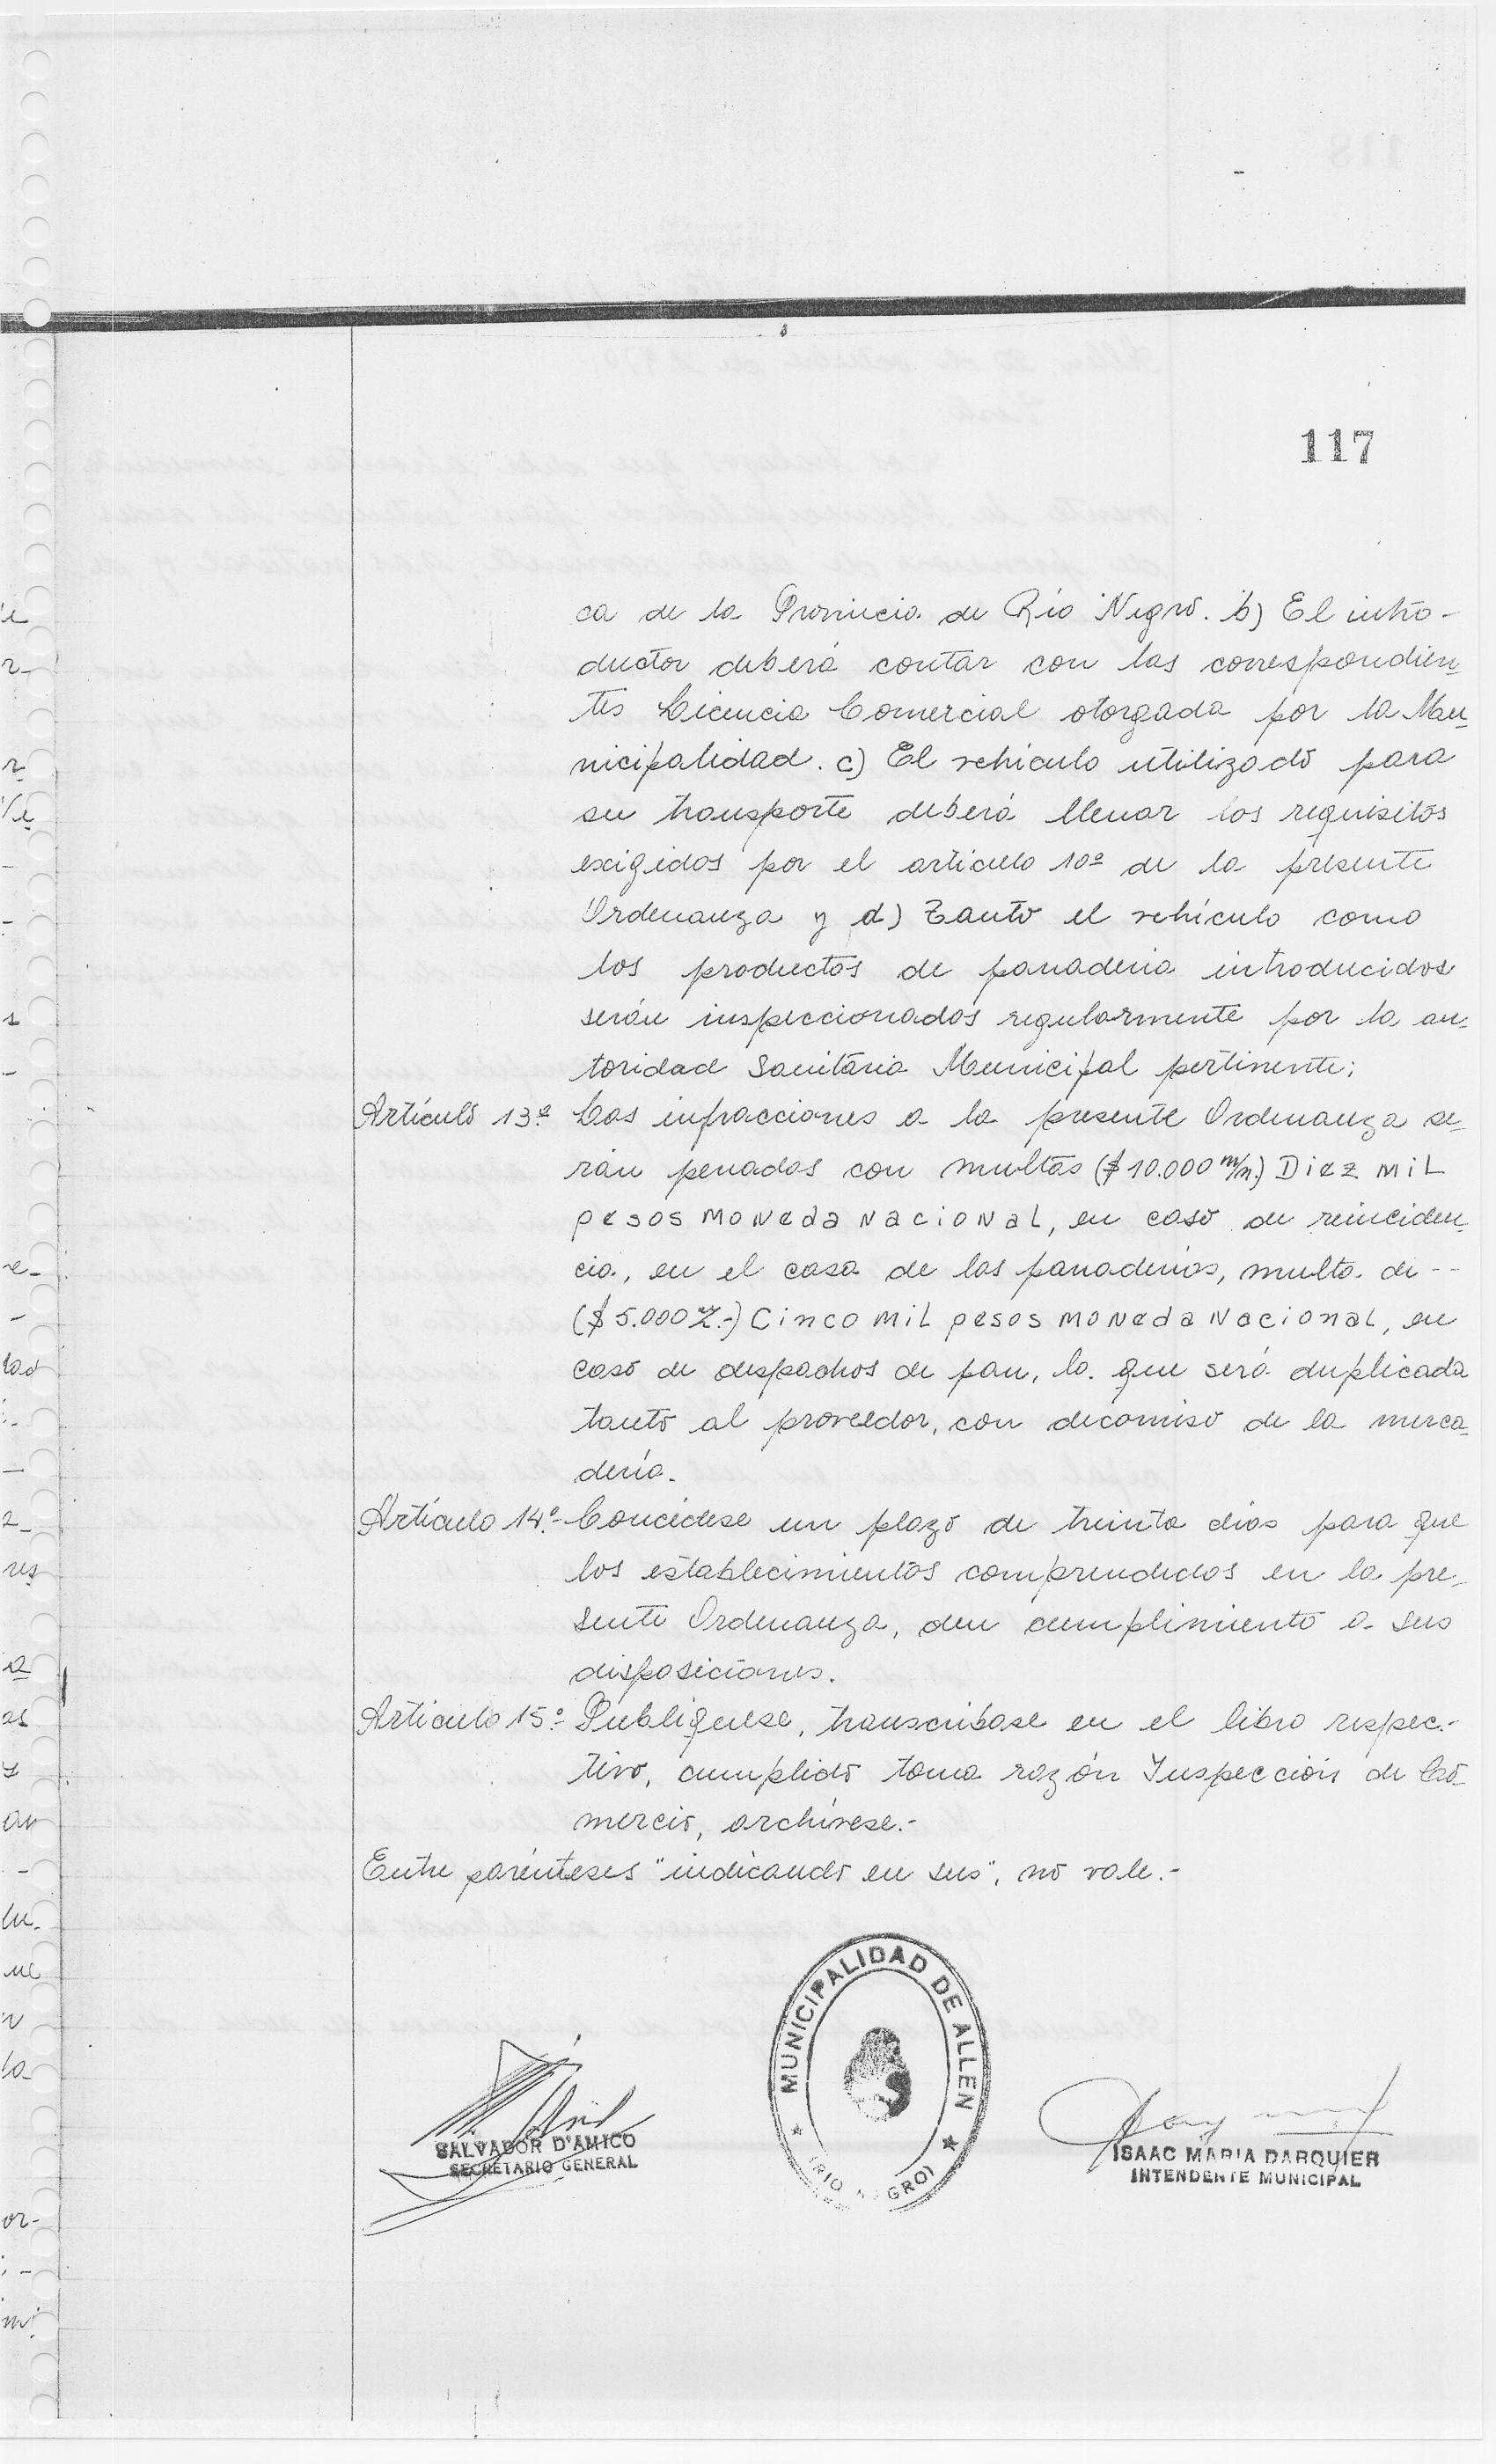 117
ca de la Provincia de Río Negro. b) El intro-
ductor deberá contar con las correspondien-
tes Licencia Comercial otorgada por la Mu-
nicipalidad. c) El vehículo utilizado para
su transporte deberá llenar los requisitos
exigidos por el artículo 10º de la presente
Ordenanza y d) Tanto el vehículo como
los productos de panadería introducidos
serán inspeccionados regularmente por la au-
toridad Sanitaria Municipal pertinente;
Artículo 13º Las infracciones a la presente Ordenanza se-
rán penados con multas ($ 10.000 m/n.) Diez mil
pesos moneda nacional, en caso de reinciden-
cia, en el caso de las panaderías, multa de --
($ 5.000 m/n.-) Cinco mil pesos moneda nacional, en
caso de despachos de pan, la que será duplicada
tanto al proveedor, con decomiso de la merca-
dería.
Artículo 14º.- Concédese un plazo de treinta días para que
los establecimientos comprendidos en la pre-
sente Ordenanza, den cumplimiento a sus
disposiciones.
Artículo 15º- Publíquese, transcríbase en el libro respec.-
tivo, cumplido toma razón Inspección de Co-
mercio, archívese.-
Entre paréntesis "indicando en sus", no vale.-
MUNICIPALIDAD DE ALLEN
(RIO NEGRO)
SALVADOR D'AMICO
SECRETARIO GENERAL
ISAAC MARIA DARQUIER
INTENDENTE MUNICIPAL